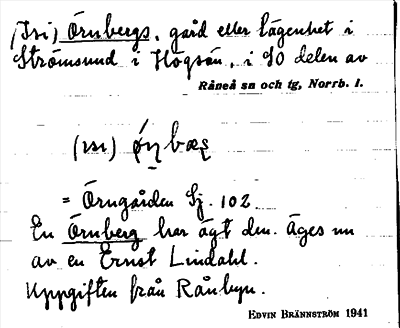 (Isi) Örnbergs, gård eller lägenhet i
Strömsund i Högsön, i SO delen av
Råneå sn och tg, Norrb. l.
(ısı)
= Örngården Sj. 102
En Örnberg har ägt den. Äges nu
av en Ernst Lindahl.
Uppgiften från Rånbyn.
EDVIN BRÄNNSTRÖM 1941